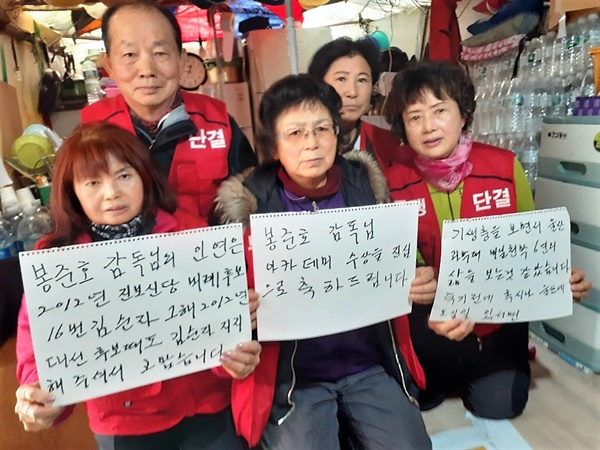 단결
단결
봉준호 감독님의 인연은
2012년 진보신당 비례후보
16번 김순자 그해 2012년
대선 후보때도 김순자 지지
해 주셔서 고맙습니다
봉준호 감독님
아카데미 수상을 진심
으로 축하드립니다
기생충을 보면서 울산
비닐천막 6년의
삶을 보는것 같았습니다
죽기전에 혹시나 울산에
오실일 있으면